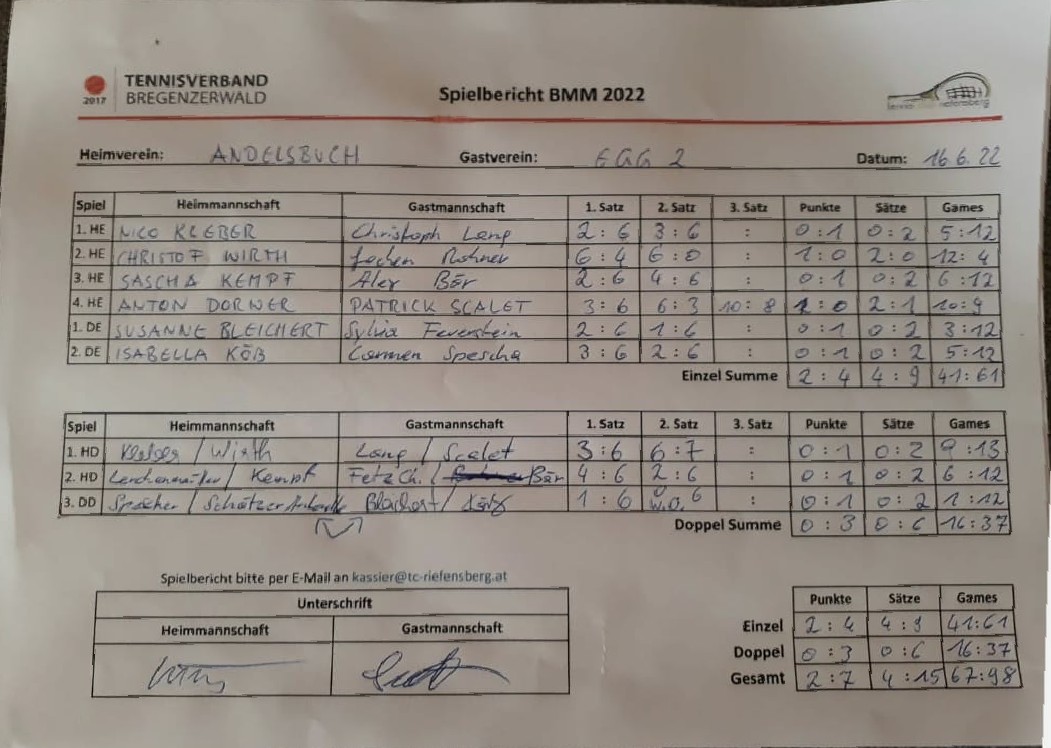 TENNISVERBAND
2017 BREGENZERWALD
Spielbericht BMM 2022
tennis riefensberg
Heimverein: ANDELSBUCH Gastverein: EGG 2 Datum: 16.6.22
Spiel Heimmannschaft Gastmannschaft 1. Satz 2. Satz 3. Satz Punkte Sätze Games
1. HE NICO KLEBER Christoph Lang 2:6 3:6 : 0:1 0:2 5:12
2. HE CHRISTOF WIRTH Jochen Rohner 6:4 6:0 : 1:0 2:0 12:4
3. HE SASCHA KEMPF Alex Bär 2:6 4:6 : 0:1 0:2 6:12
4. HE ANTON DORNER PATRICK SCALET 3:6 6:3 10:8 1:0 2:1 10:9
1. DE SUSANNE BLEICHERT Sylvia Feuerstein 2:6 1:6 : 0:1 0:2 3:12
2. DE ISABELLA KÖß Carmen Spescha 3:6 2:6 : 0:1 0:2 5:12
Einzel Summe 2:4 4:9 41:61
Spiel Heimmannschaft Gastmannschaft 1. Satz 2. Satz 3. Satz Punkte Sätze Games
1. HD Kleber / Wirth Lang / Scalet 3:6 6:7 : 0:1 0:2 9:13
2. HD / Kempf Fetz Ch. / Bär 4:6 2:6 : 0:1 0:2 6:12
3. DD / 1:6 0:6 w.o. : 0:1 0:2 1:12
Doppel Summe 0:3 0:6 16:37
Spielbericht bitte per E-Mail an kassier@tc-riefensberg.at
Unterschrift
Heimmannschaft Gastmannschaft
Punkte Sätze Games
Einzel 2:4 4:9 41:61
Doppel 0:3 0:6 16:37
Gesamt 2:7 4:15 67:98